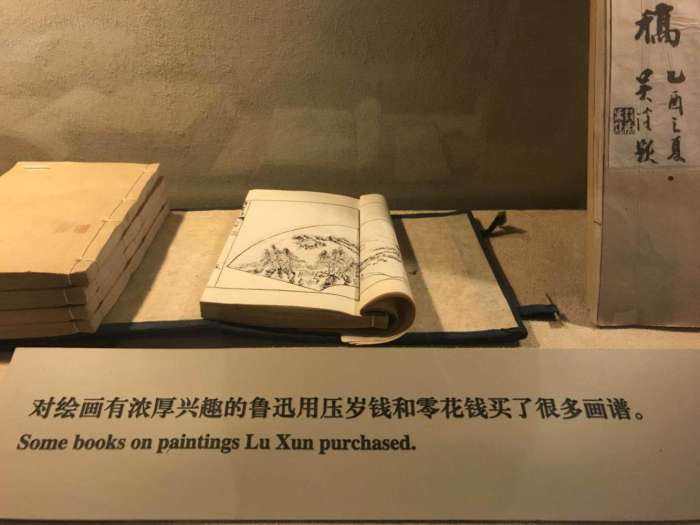 稿
乙酉之夏
对绘画有浓厚兴趣的鲁迅用压岁钱和零花钱买了很多画谱。
Some books on paintings Lu Xun purchased.